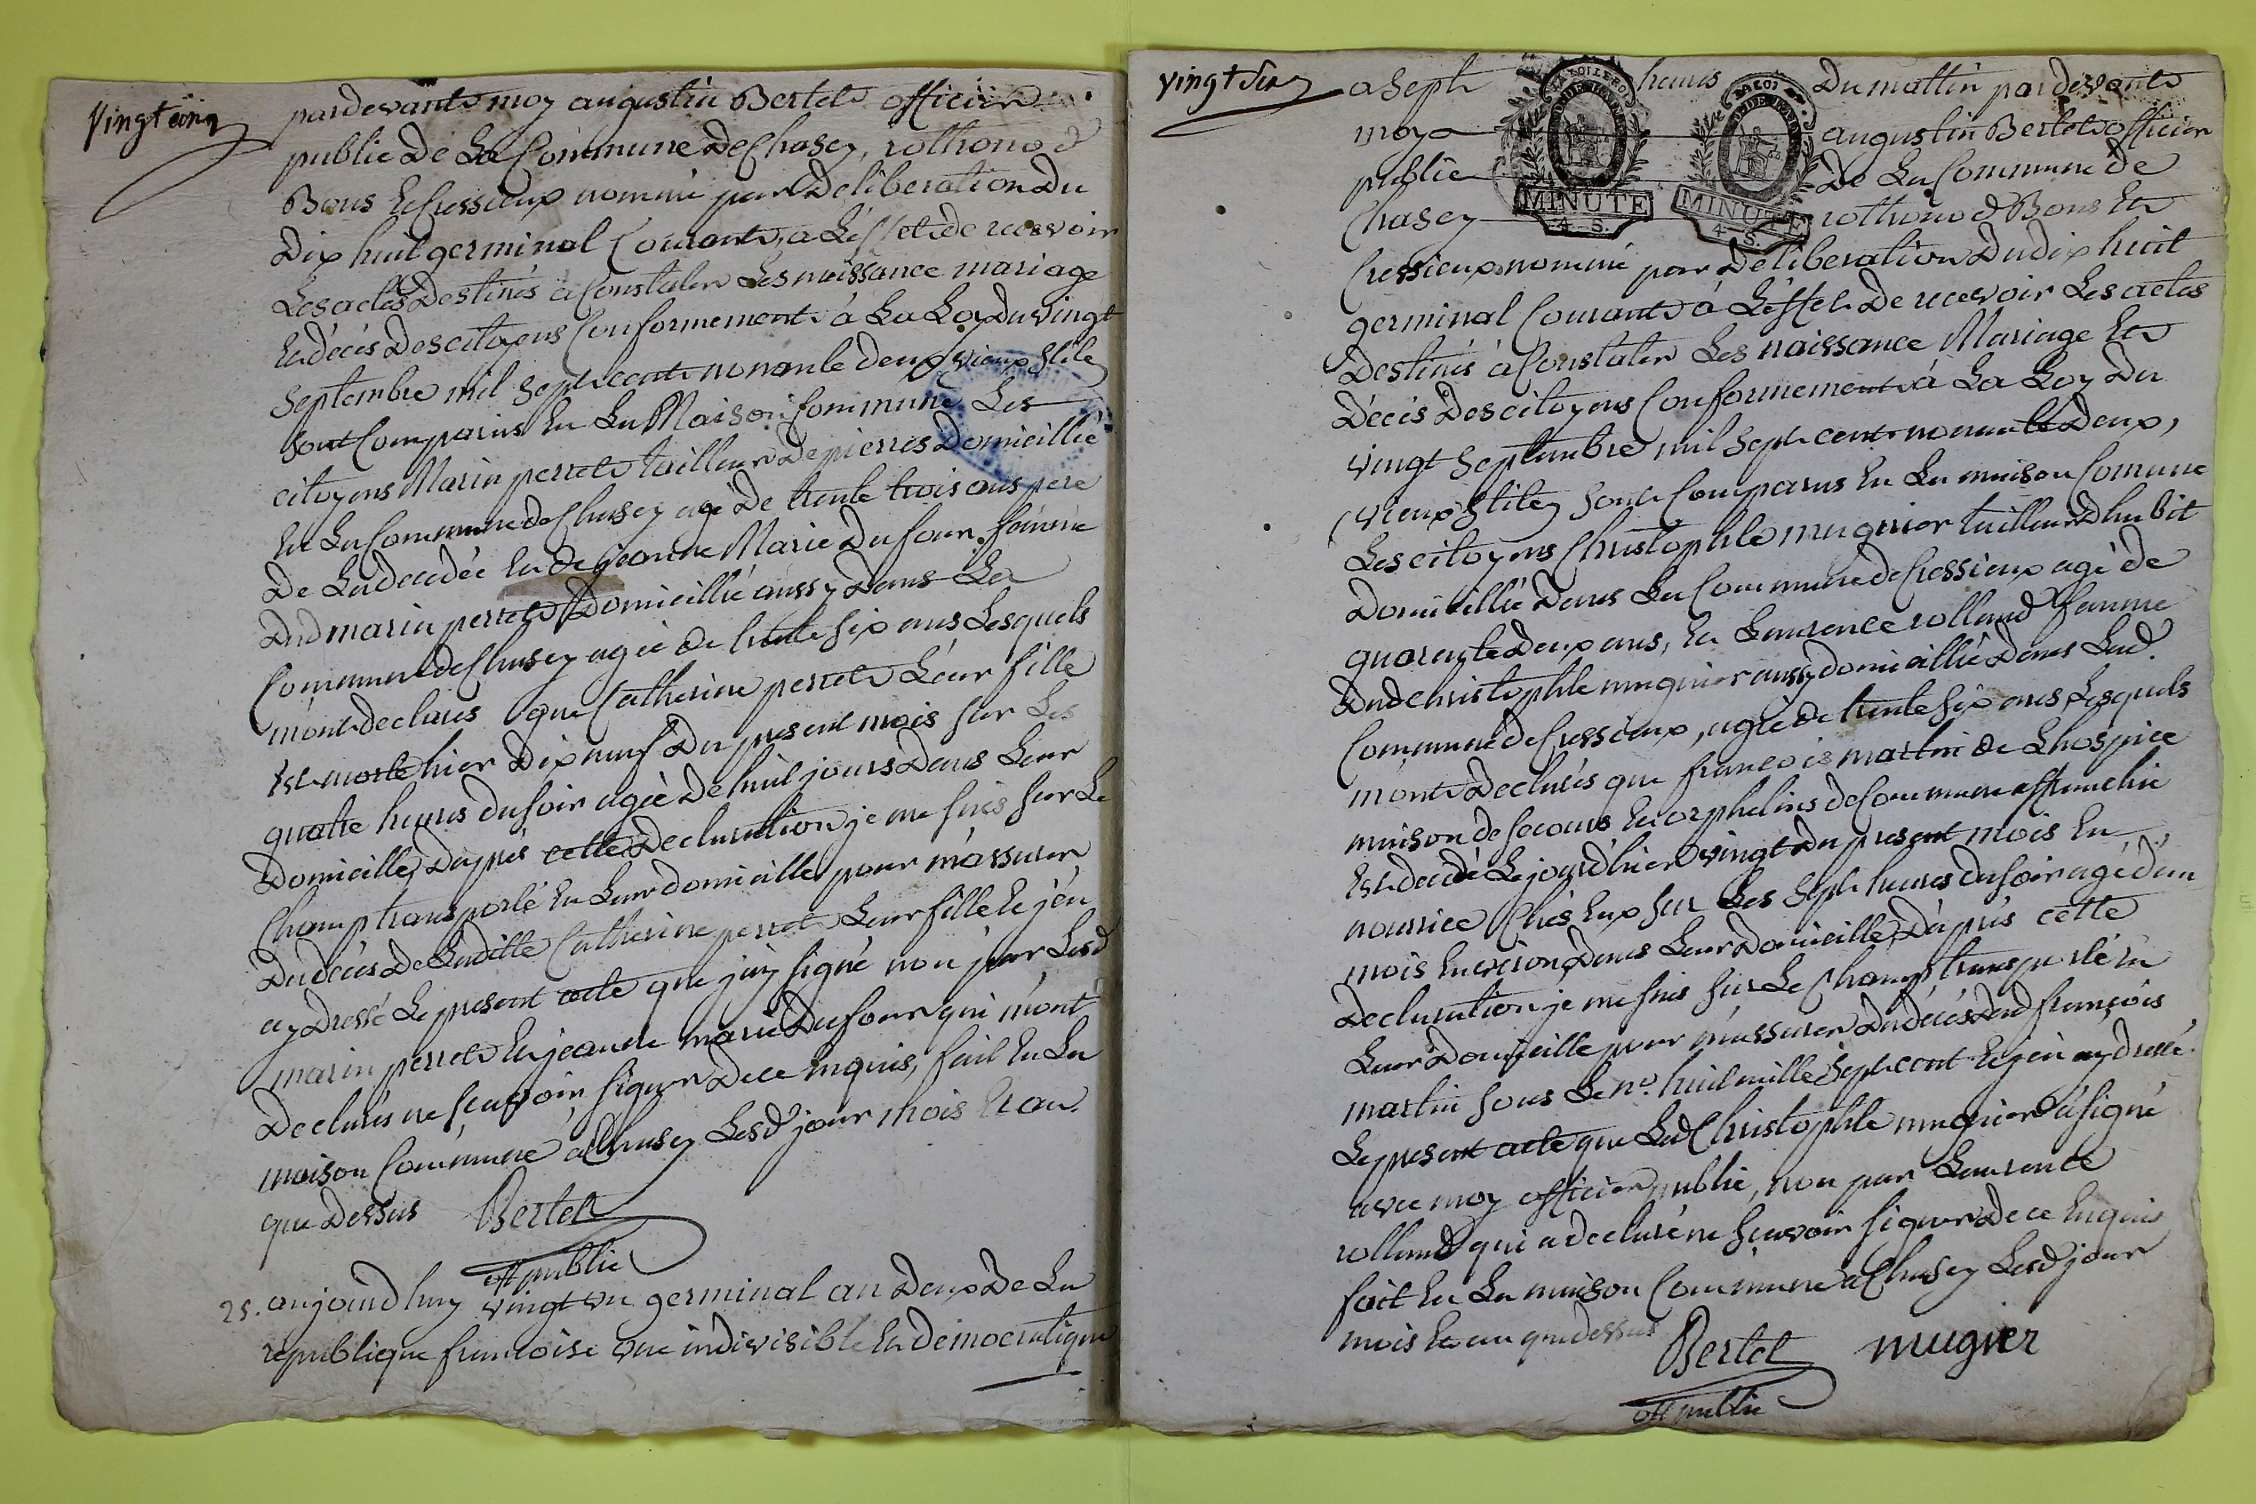 Vingt cinq
pardevant moy augustin Bertet officier
public de La Commune de Chasey, rothono &
Bons Et Cressieux nommé par deliberation du
dix huit germinal Courant, a L'éffet de recevoir
Les actes Destinés a Constater Les naissance mariage
Et décés Des citoyens Conformement à La Loy du vingt
Septembre mil Sept cent nonante deux, vieux stile,
sont Comparus En La Maison Commune Les
citoyens Marin perret tailleur de pierres Domicillié
En La Commune de Chasey agé De trente trois ans pere
De La decedée Et de jeanne Marie Dufour femme
Dud marin perret Domicillié aussy Dans La
Commune de Chasey agée de trente six ans Lesquels
m'ont declarés que Catherine perret Leur fille
Est morte hier Dix neuf Du present mois sur Les
quatre heures du soir agée De huit jours Dans Leur
Domicille, D'après cette Declaration je me suis sur Le
Champ transporté En Leur domicille pour m'assurer
Du décés De Laditte Catherine perret Leur fille Et j'en
ay Dressé Le present acte que j'ay signé non par Lesd
marin perret Et jeanne marie Dufour qui m'ont
Declarés ne sçavoir signer De ce Enquis, fait En La
maison Commune a Chasey Lesd jour mois Et an
que Dessus Bertet
off public
25. aujourd'huy vingt un germinal an Deux De La
republique francoise une indivisible Et démocratique
vingt six
a Sept heures Du mattin pardevant
moy augustin Bertet officier
public De La Commune de
Chasey rothono & Bons Et
MINUTE
4 S.
MINUTE
4 S.
Cressieux nommé par Deliberation Du dix huit
germinal Courant a L'éffet De recevoir Les actes
Destinés à Constater Les naissance Mariage Et
Décés Des citoyens Conformement à La Loy Du
vingt Septembre mil Sept cent nonante Deux,
vieux Stile, sont Comparus En La maison Comune
Les citoyens Christophle mugnier tailleur d'habit
Domicillié Dans La Commune de Cressieux agé de
quarente Deux ans, Et Laurence rolland femme
Dud christophle mugnier aussy domicillié Dans Lad
Commune de Cressieux, agée de trente six ans Lesquels
m'ont Declarés que françois martin de Lhospice
maison de secours En orphelins de Commune affranchie
Est decedé Le jourd'hier vingt Du present mois En
nourrice Chés Eux sur Les Sept heures du soir agé d'un
mois Environ, Dans Leur Domicille, D'aprés cette
Declaration je me suis sur Le Champ transporté En
Leur Domicille pour m'assurer Du décés Dud françois
martin sous Le n.o huit mille Sept cent Et j'en ay dressé
Le present acte que Led Christophle mugnier a signé
avec moy officier public, non par Laurence
rolland qui a declaré ne sçavoir signer De ce Enquis
fait En La maison Commune a Chasey Lesd jour
mois Et an que dessus
Bertet mugnier
off public